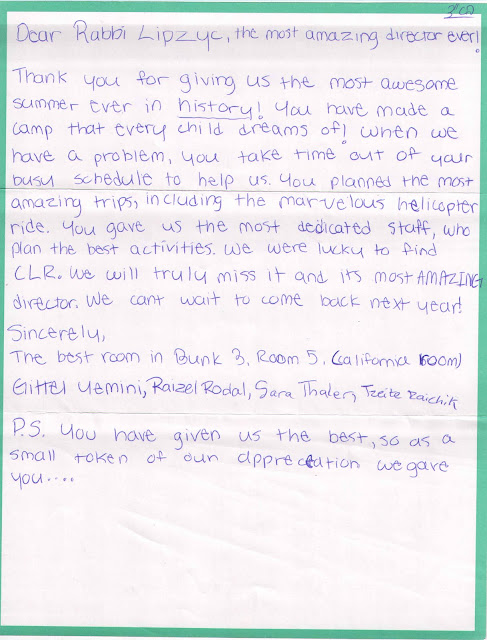 Dear Rabbi Lipzyc, the most amazing director ever!
Thank you for giving us the most awesome
summer ever in history! You have made a
camp that every child dreams of! When we
have a problem, you take time out of your
busy schedule to help us. You planned the most
amazing trips, including the marvelous helicopter
ride. You gave us the most dedicated staff, who
plan the best activities. We were lucky to find
CLR. We will truly miss it and its most AMAZING
director. We cant wait to come back next year!
Sincerely,
The best room in Bunk 3, Room 5. (California room)
Gittel Yemini, Raizel Rodal, Sara Thaler, Tzeite Raichik
P.S. You have given us the best, so as a
small token of our appreciation we gave
you....